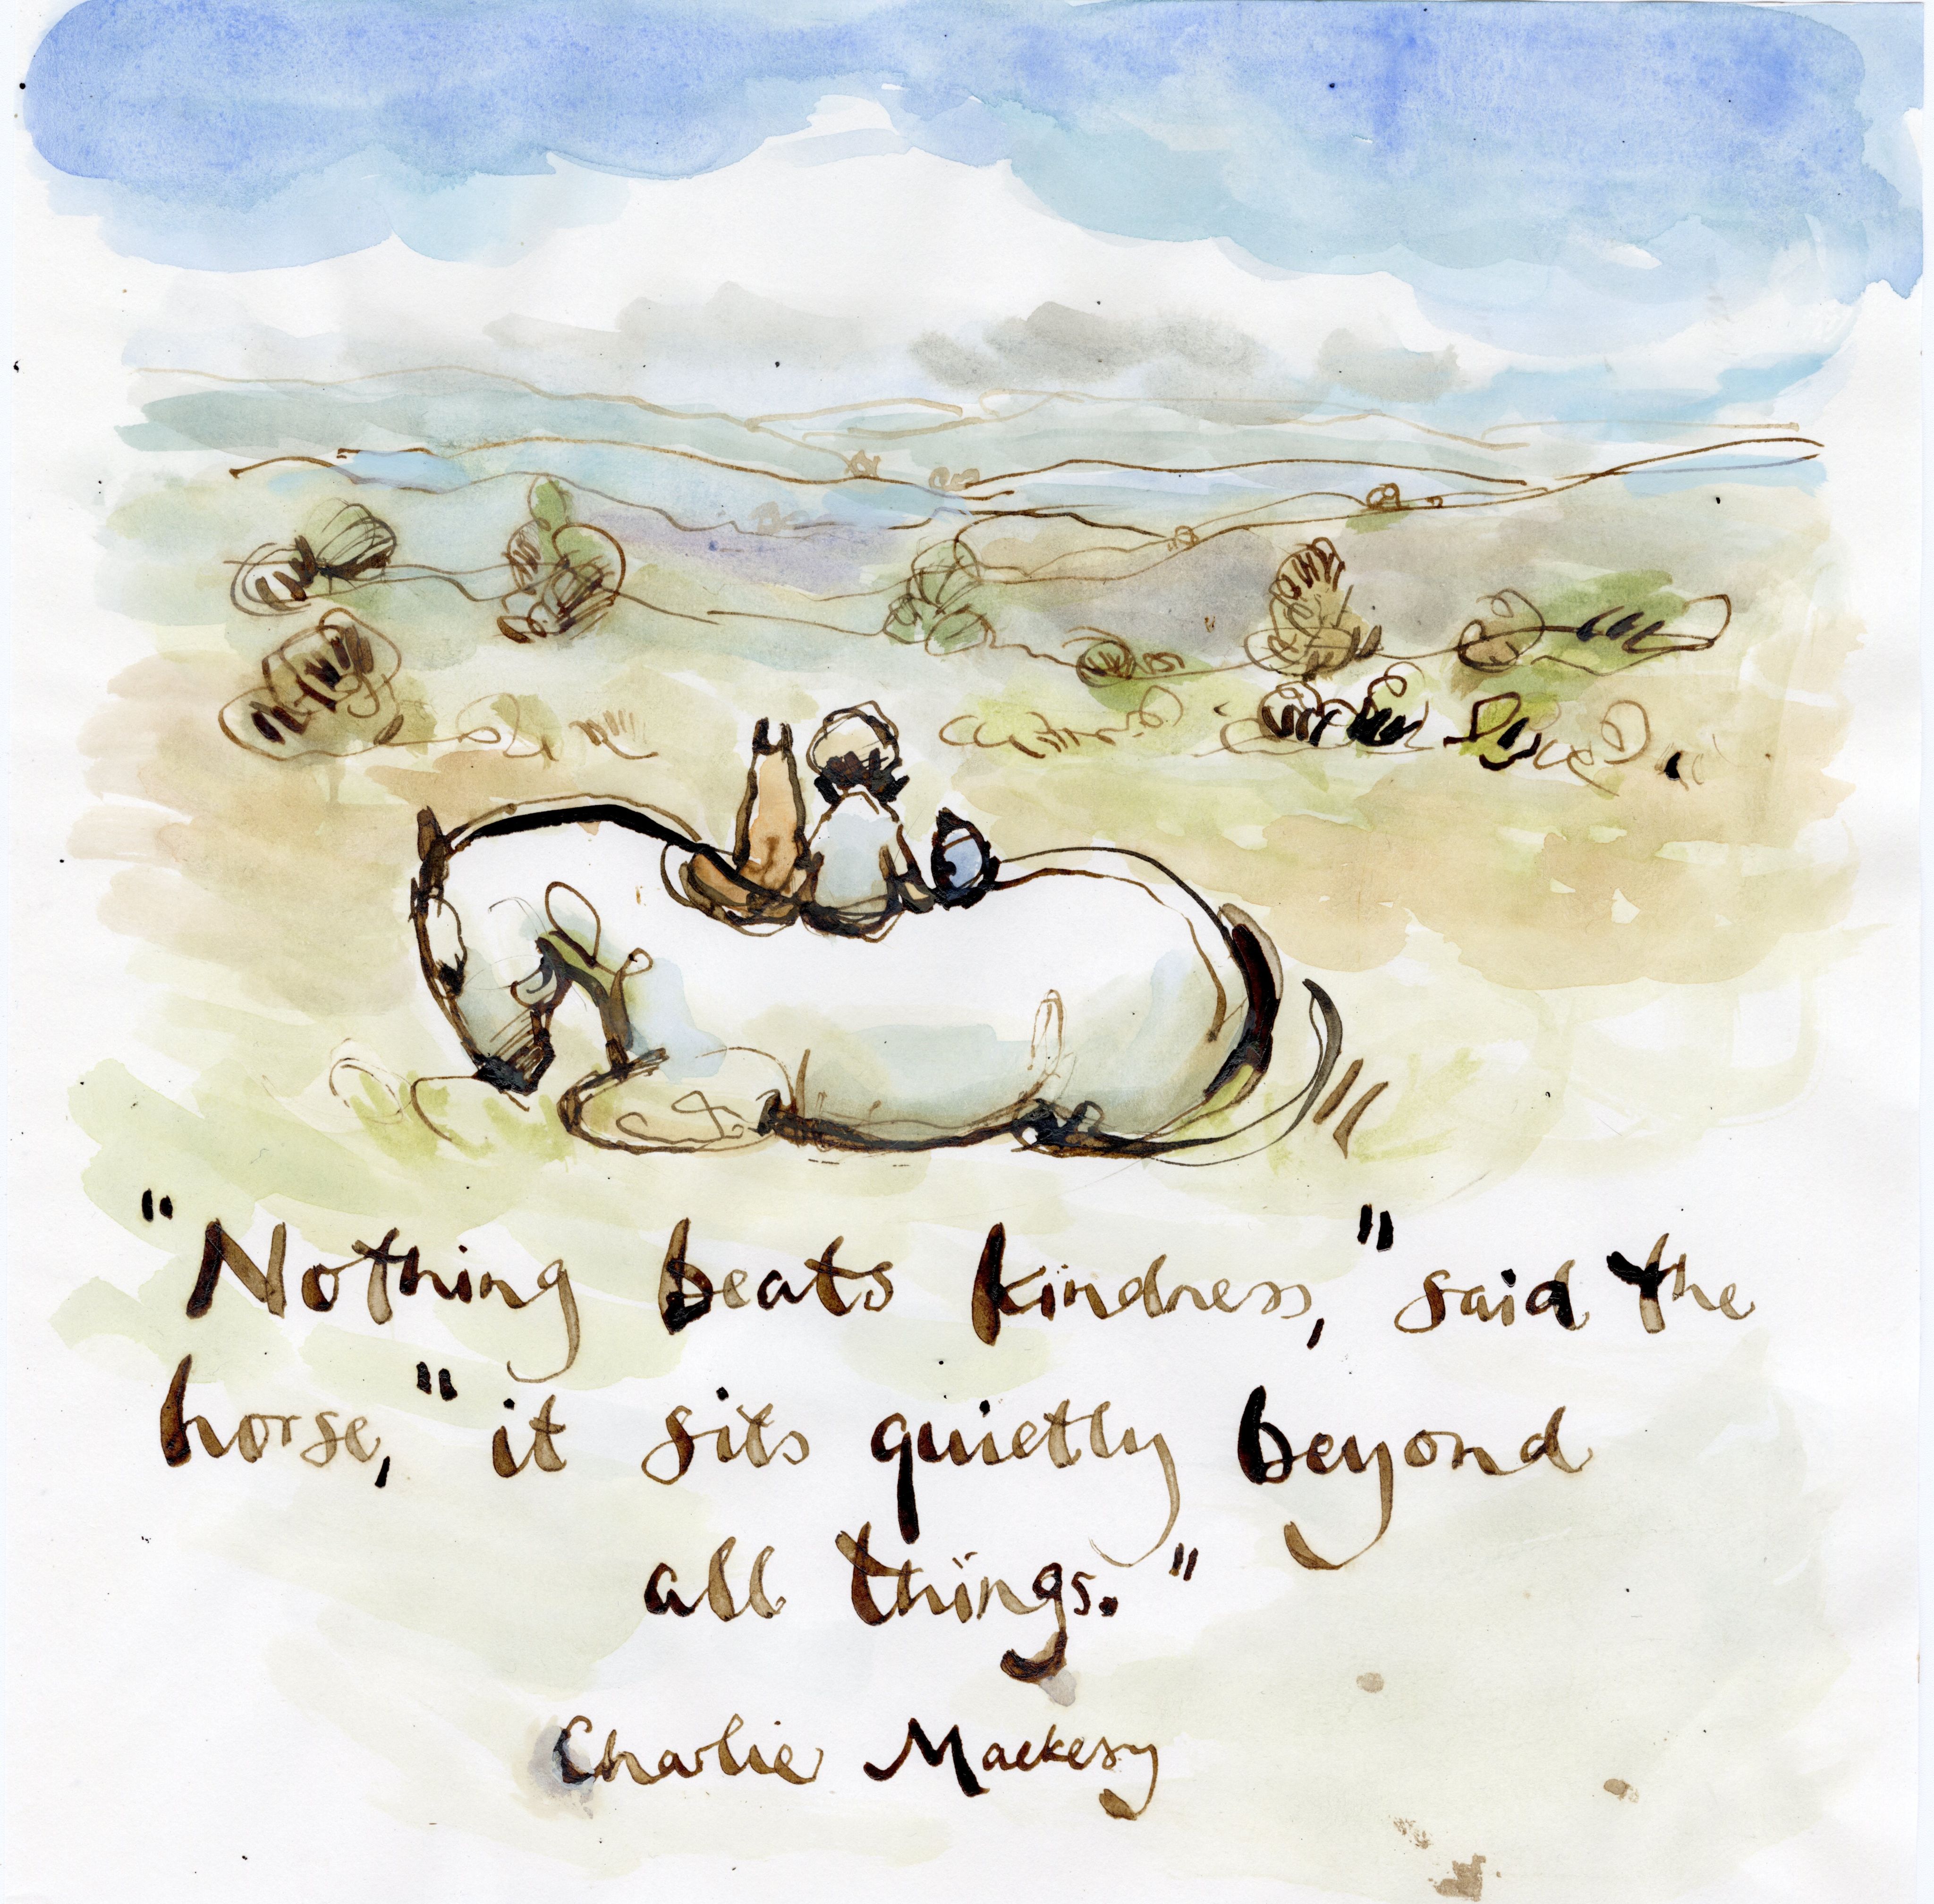 "Nothing beats kindness," said the
horse, "it sits quietly beyond
all things."
Charlie Mackesy